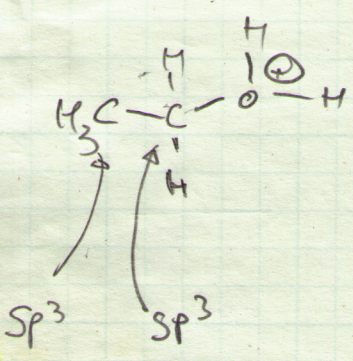 H
H ⊕
H₃C — C — O — H
H
sp³ sp³